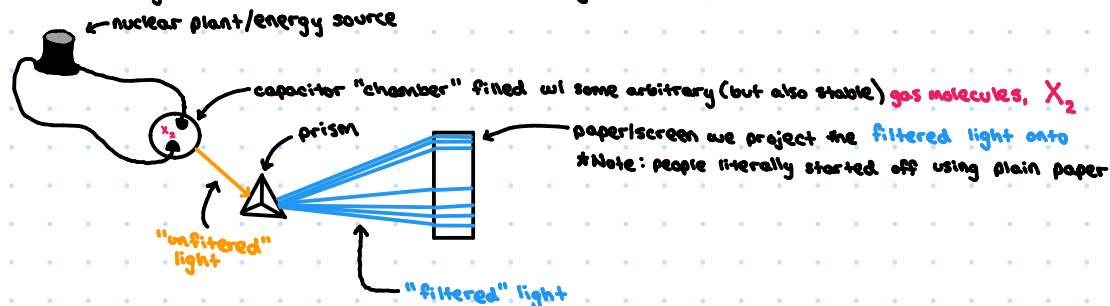 nuclear plant/energy source
capacitor "chamber" filled w/ some arbitrary (but also stable) gas molecules, X₂
X₂
prism
paper/screen we project the filtered light onto
*Note: people literally started off using plain paper
"unfiltered"
light
"filtered" light